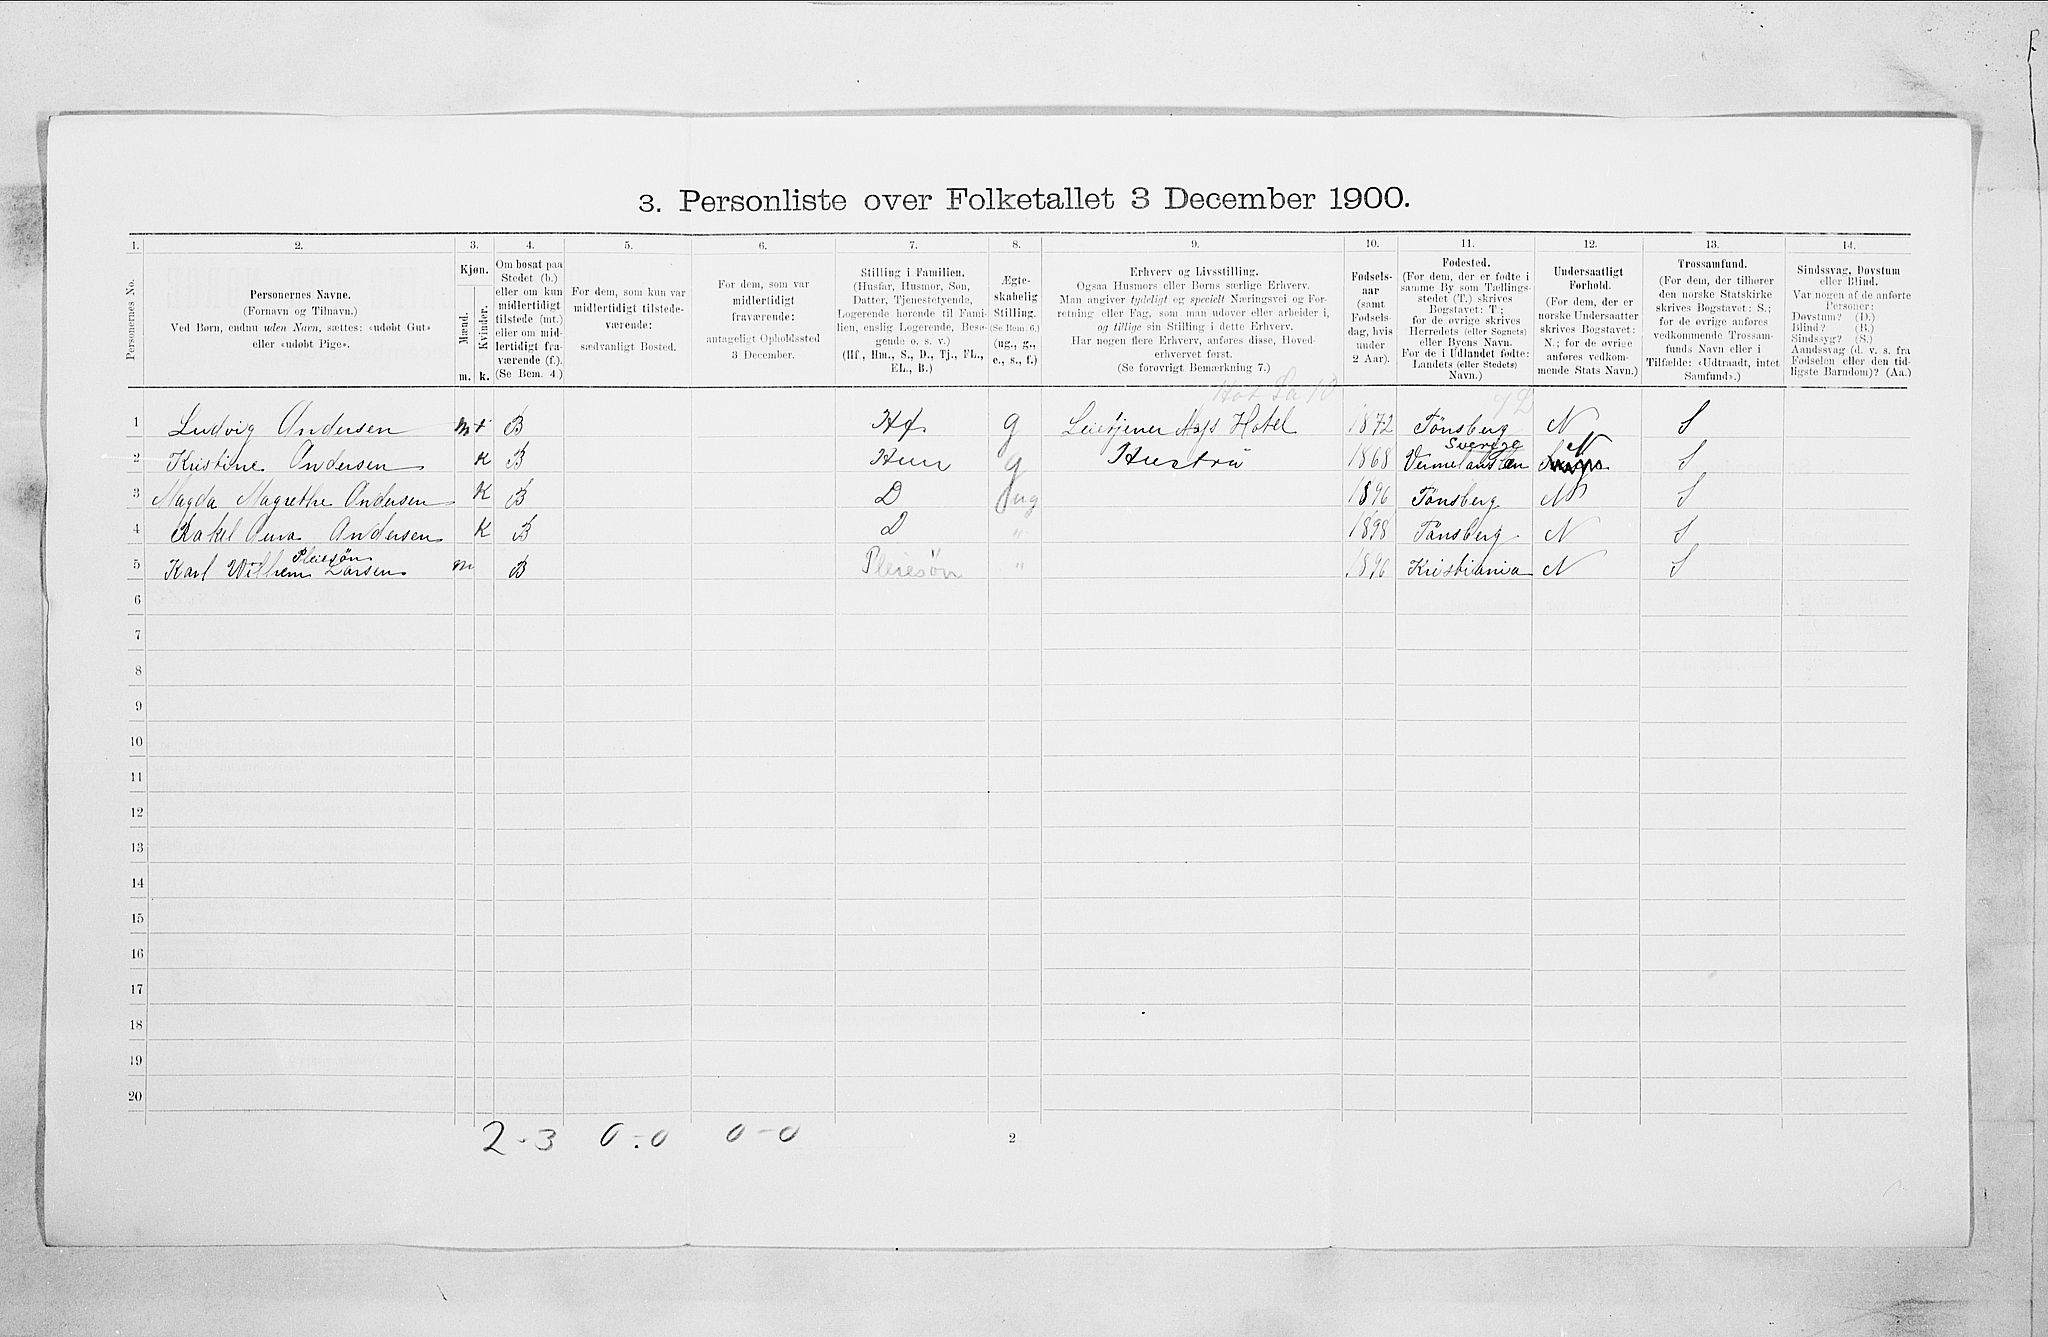 3. Personliste over Folketallet 3 December 1900.
1. 2. 3. 4. 5. 6. 7. 8. 9. 10. 11. 12. 13. 14.
Personernes No.
Personernes Navne.
(Fornavn og Tilnavn.)
Ved Børn, endnu uden Navn, sættes: «udøbt Gut»
eller «udøbt Pige».
Kjøn.
Mænd.
Kvinder.
m. k.
Om bosat paa
Stedet (b.)
eller om kun
midlertidigt
tilstede (mt.)
eller om mid-
lertidigt fra-
værende (f.).
(Se Bem. 4.)
For dem, som kun var
midlertidigt tilstede-
værende:
sædvanligt Bosted.
For dem, som var
midlertidigt
fraværende:
antageligt Opholdssted
3 December.
Stilling i Familien.
(Husfar, Husmor, Søn,
Datter, Tjenestetyende,
Logerende hørende til Fami-
lien, enslig Logerende, Besø-
gende o. s. v.)
(Hf., Hm., S., D., Tj., FL.,
EL., B.)
Ægte-
skabelig
Stilling.
(Se Bem. 6.)
(ug., g.,
e., s., f.)
Erhverv og Livsstilling.
Ogsaa Husmors eller Børns særlige Erhverv.
Man angiver tydeligt og specielt Næringsvei og For-
retning eller Fag, som man udøver eller arbeider i,
og tillige sin Stilling i dette Erhverv.
Har nogen flere Erhverv, anføres disse, Hoved-
erhvervet først.
(Se forøvrigt Bemærkning 7.)
Fødsels-
aar
(samt
Fødsels-
dag, hvis
under
2 Aar).
Fødested.
(For dem, der er fødte i
samme By som Tællings-
stedet (T.) skrives
Bogstavet: T;
for de øvrige skrives
Herredets (eller Sognets)
eller Byens Navn.
For de i Udlandet fødte:
Landets (eller Stedets)
Navn.)
Undersaatligt
Forhold.
(For dem, der er
norske Undersaatter
skrives Bogstavet:
N.; for de øvrige
anføres vedkom-
mende Stats Navn.)
Trossamfund.
(For dem, der tilhører
den norske Statskirke
skrives Bogstavet: S.;
for de øvrige anføres
vedkommende Trossam-
funds Navn eller i
Tilfælde: «Udtraadt, intet
Samfund».)
Sindssvag, Døvstum
eller Blind.
Var nogen af de anførte
Personer:
Døvstum? (D.)
Blind? (B.)
Sindssyg? (S.)
Aandssvag (d. v. s. fra
Fødselen eller den tid-
ligste Barndom)? (Aa.)
1 Ludvig Andersen m B Hf. g Hotel 1872 Tønsberg N S
Sverige
2 Kristine Andersen K B Hm g Hustru 1868 N S
3 Magda Magrethe Andersen K B D ug 1896 Tønsberg N S
4 Rakel Andersen K B D " 1898 Tønsberg N S
Pleiesøn
5 Karl Wilhem Larsen m B Pleiesøn " 1896 Kristiania N S
6
7
8
9
10
11
12
13
14
15
16
17
18
19
20
2-3 0-0 0-0
2